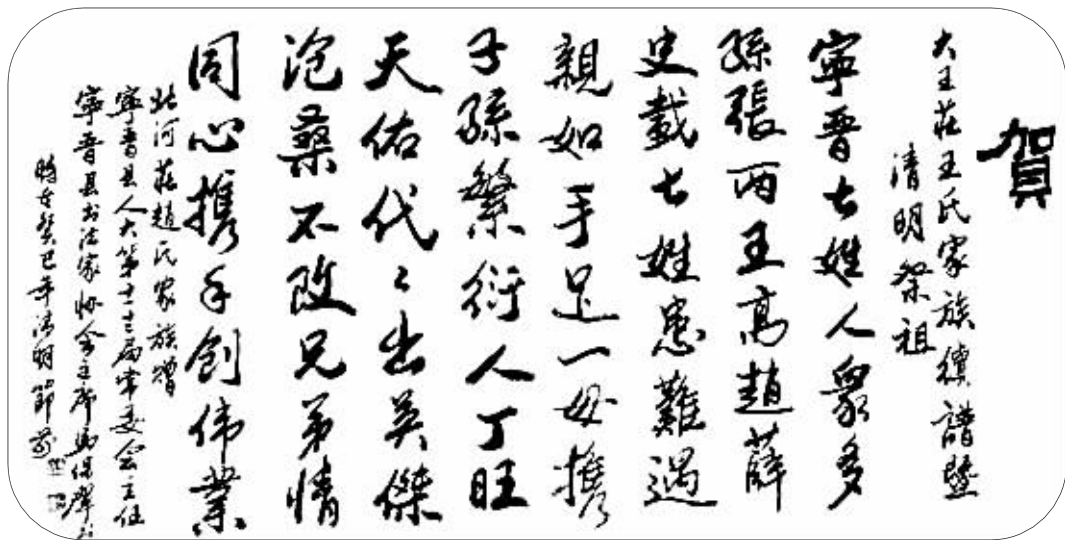 賀
大王莊王氏家族續譜暨
清明祭祖
寧晉七姓人衆多
孫張两王高趙薛
史載七姓患難遇
親如手足一母携
子孫繁衍人丁旺
天佑代々出英傑
沧桑不改兄弟情
同心携手創伟業
北河莊趙氏家族贈
寧晋县人大第十二届常委会主任
寧晋县书法家协会主席馬保
時在癸巳年清明節前